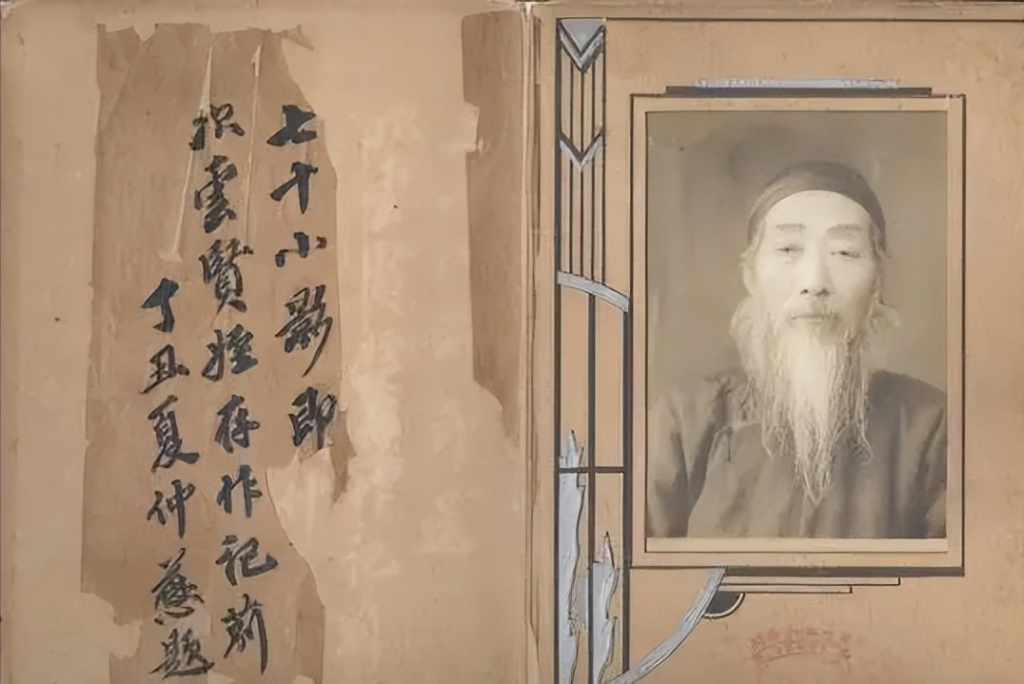 七十小影即
雲賢姪存作記莂
丁丑夏仲慈題